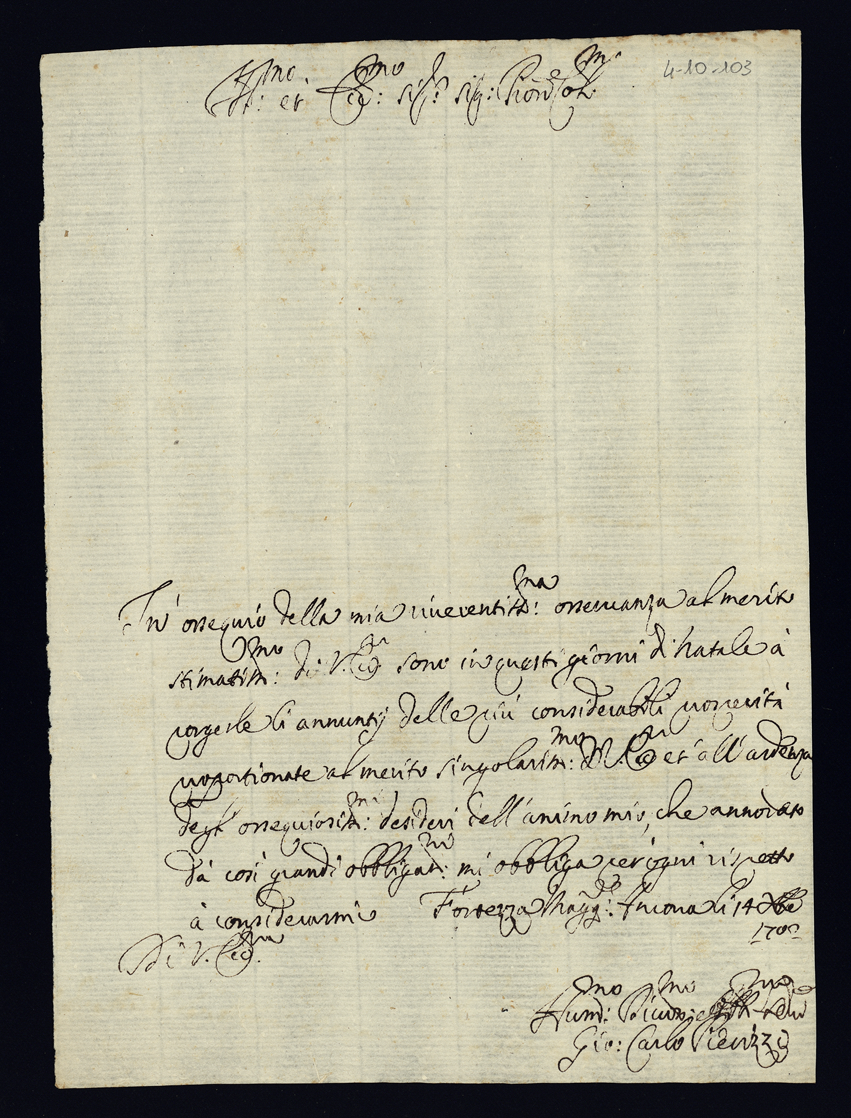 4-10-103
Ill:mo et Ecc:mo Sig:r Sig: Pron Col:mo
In' ossequio della mia riverentiss:ma osservanza al merito
stimatiss:mo di V. Ecc:za sono in questi giorni di Natale à
porgerle li annuntij delle più considerabili prosperità
proportionate al merito singolariss:mo di V. Ecc:za et all'ardenza
degl' ossequiosiss:mi desideri dell'animo mio, che annodato
dà così grandi obbligat:ni mi obbliga per ogni rispetto
à considerarmi Fortezza Magg: Ancona li 14 Xbre
Di V. Ecc:za
Hum:mo Div:mo et Obb:mo Serv
Gio: Carlo Pierizzi